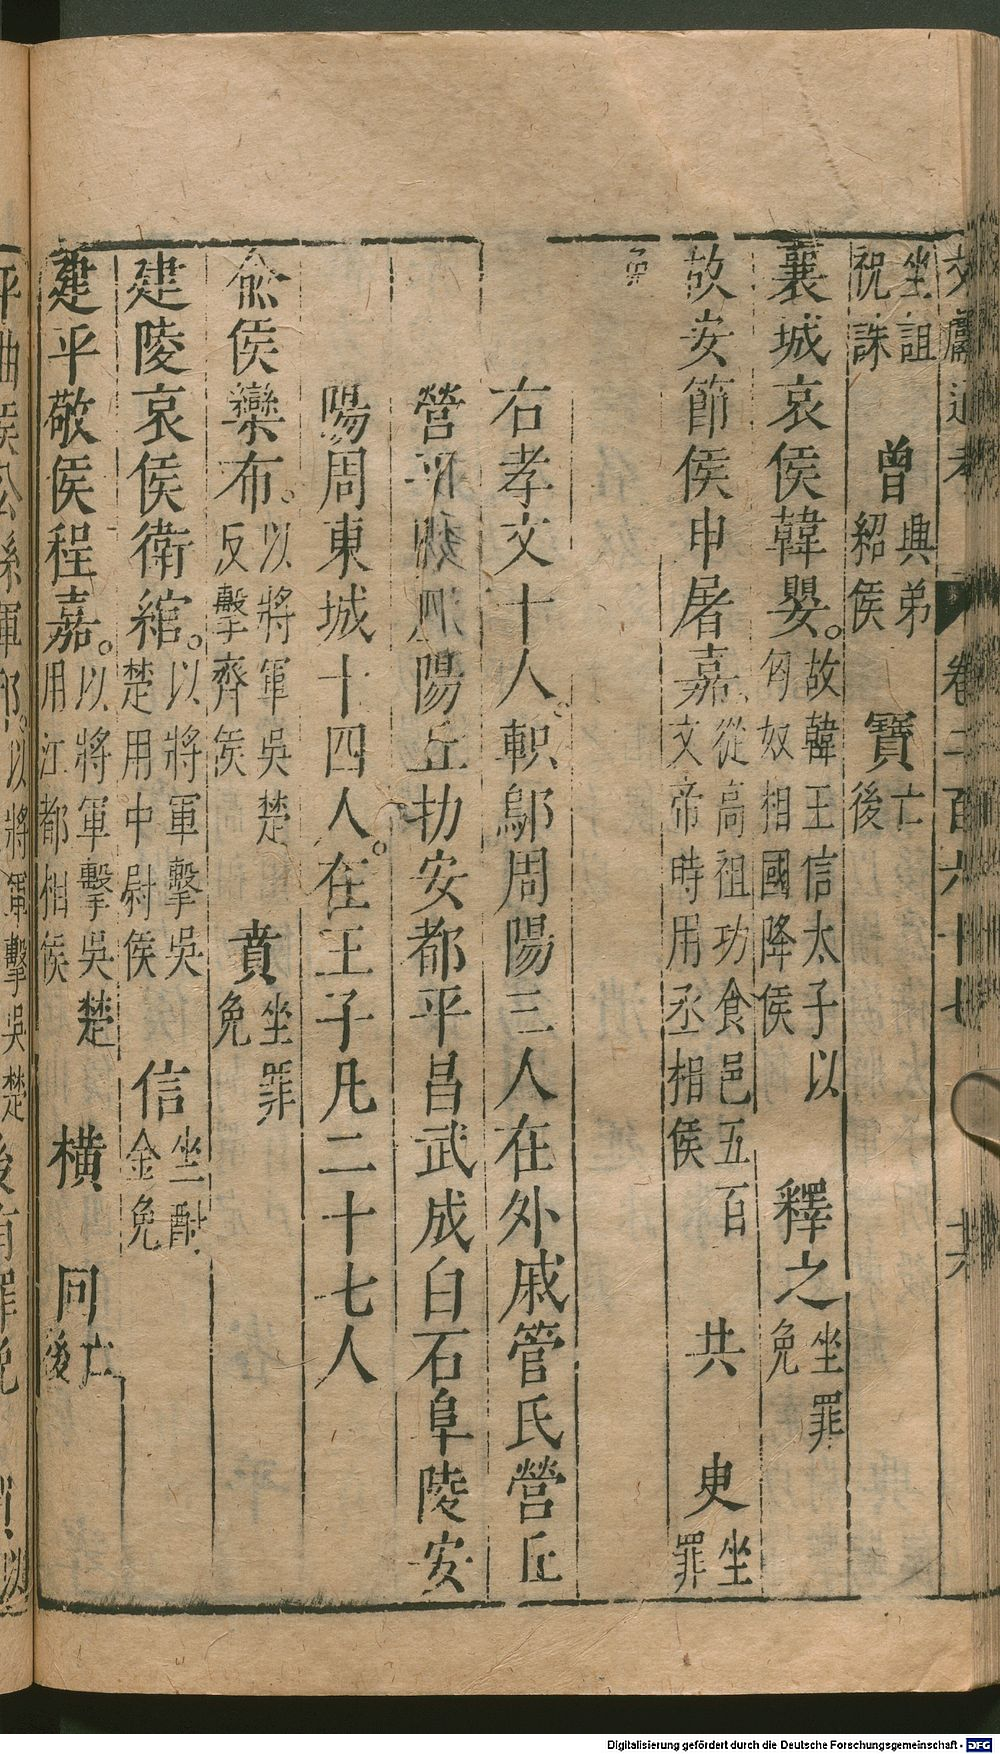 文獻通考 卷二百六十七 共
坐詛祝誅 曾 與弟紹侯 寶 亡後
襄城哀侯韓嬰。故韓王信太子以匈奴相國降侯 釋之 坐罪免
故安節侯申屠嘉 從高祖功食邑五百文帝時用丞相侯 共 史 坐罪
免
右孝文十人。軹鄔周陽三人在外戚管氏營丘
營平 陽丘朸安都平昌武成白石阜陵安
陽周東城十四人。在王子凡二十七人
俞侯欒布。以將軍吳楚反擊齊侯 賁 坐罪免
建陵哀侯衛綰。以將軍擊吳楚用中尉侯 信 坐酎金免
建平敬侯程嘉。以將軍擊吳楚用江都相侯 橫 回 亡後
平曲侯公孫渾邪。以將軍擊吳楚 後有罪免
Digitalisierung gefördert durch die Deutsche Forschungsgemeinschaft - DFG